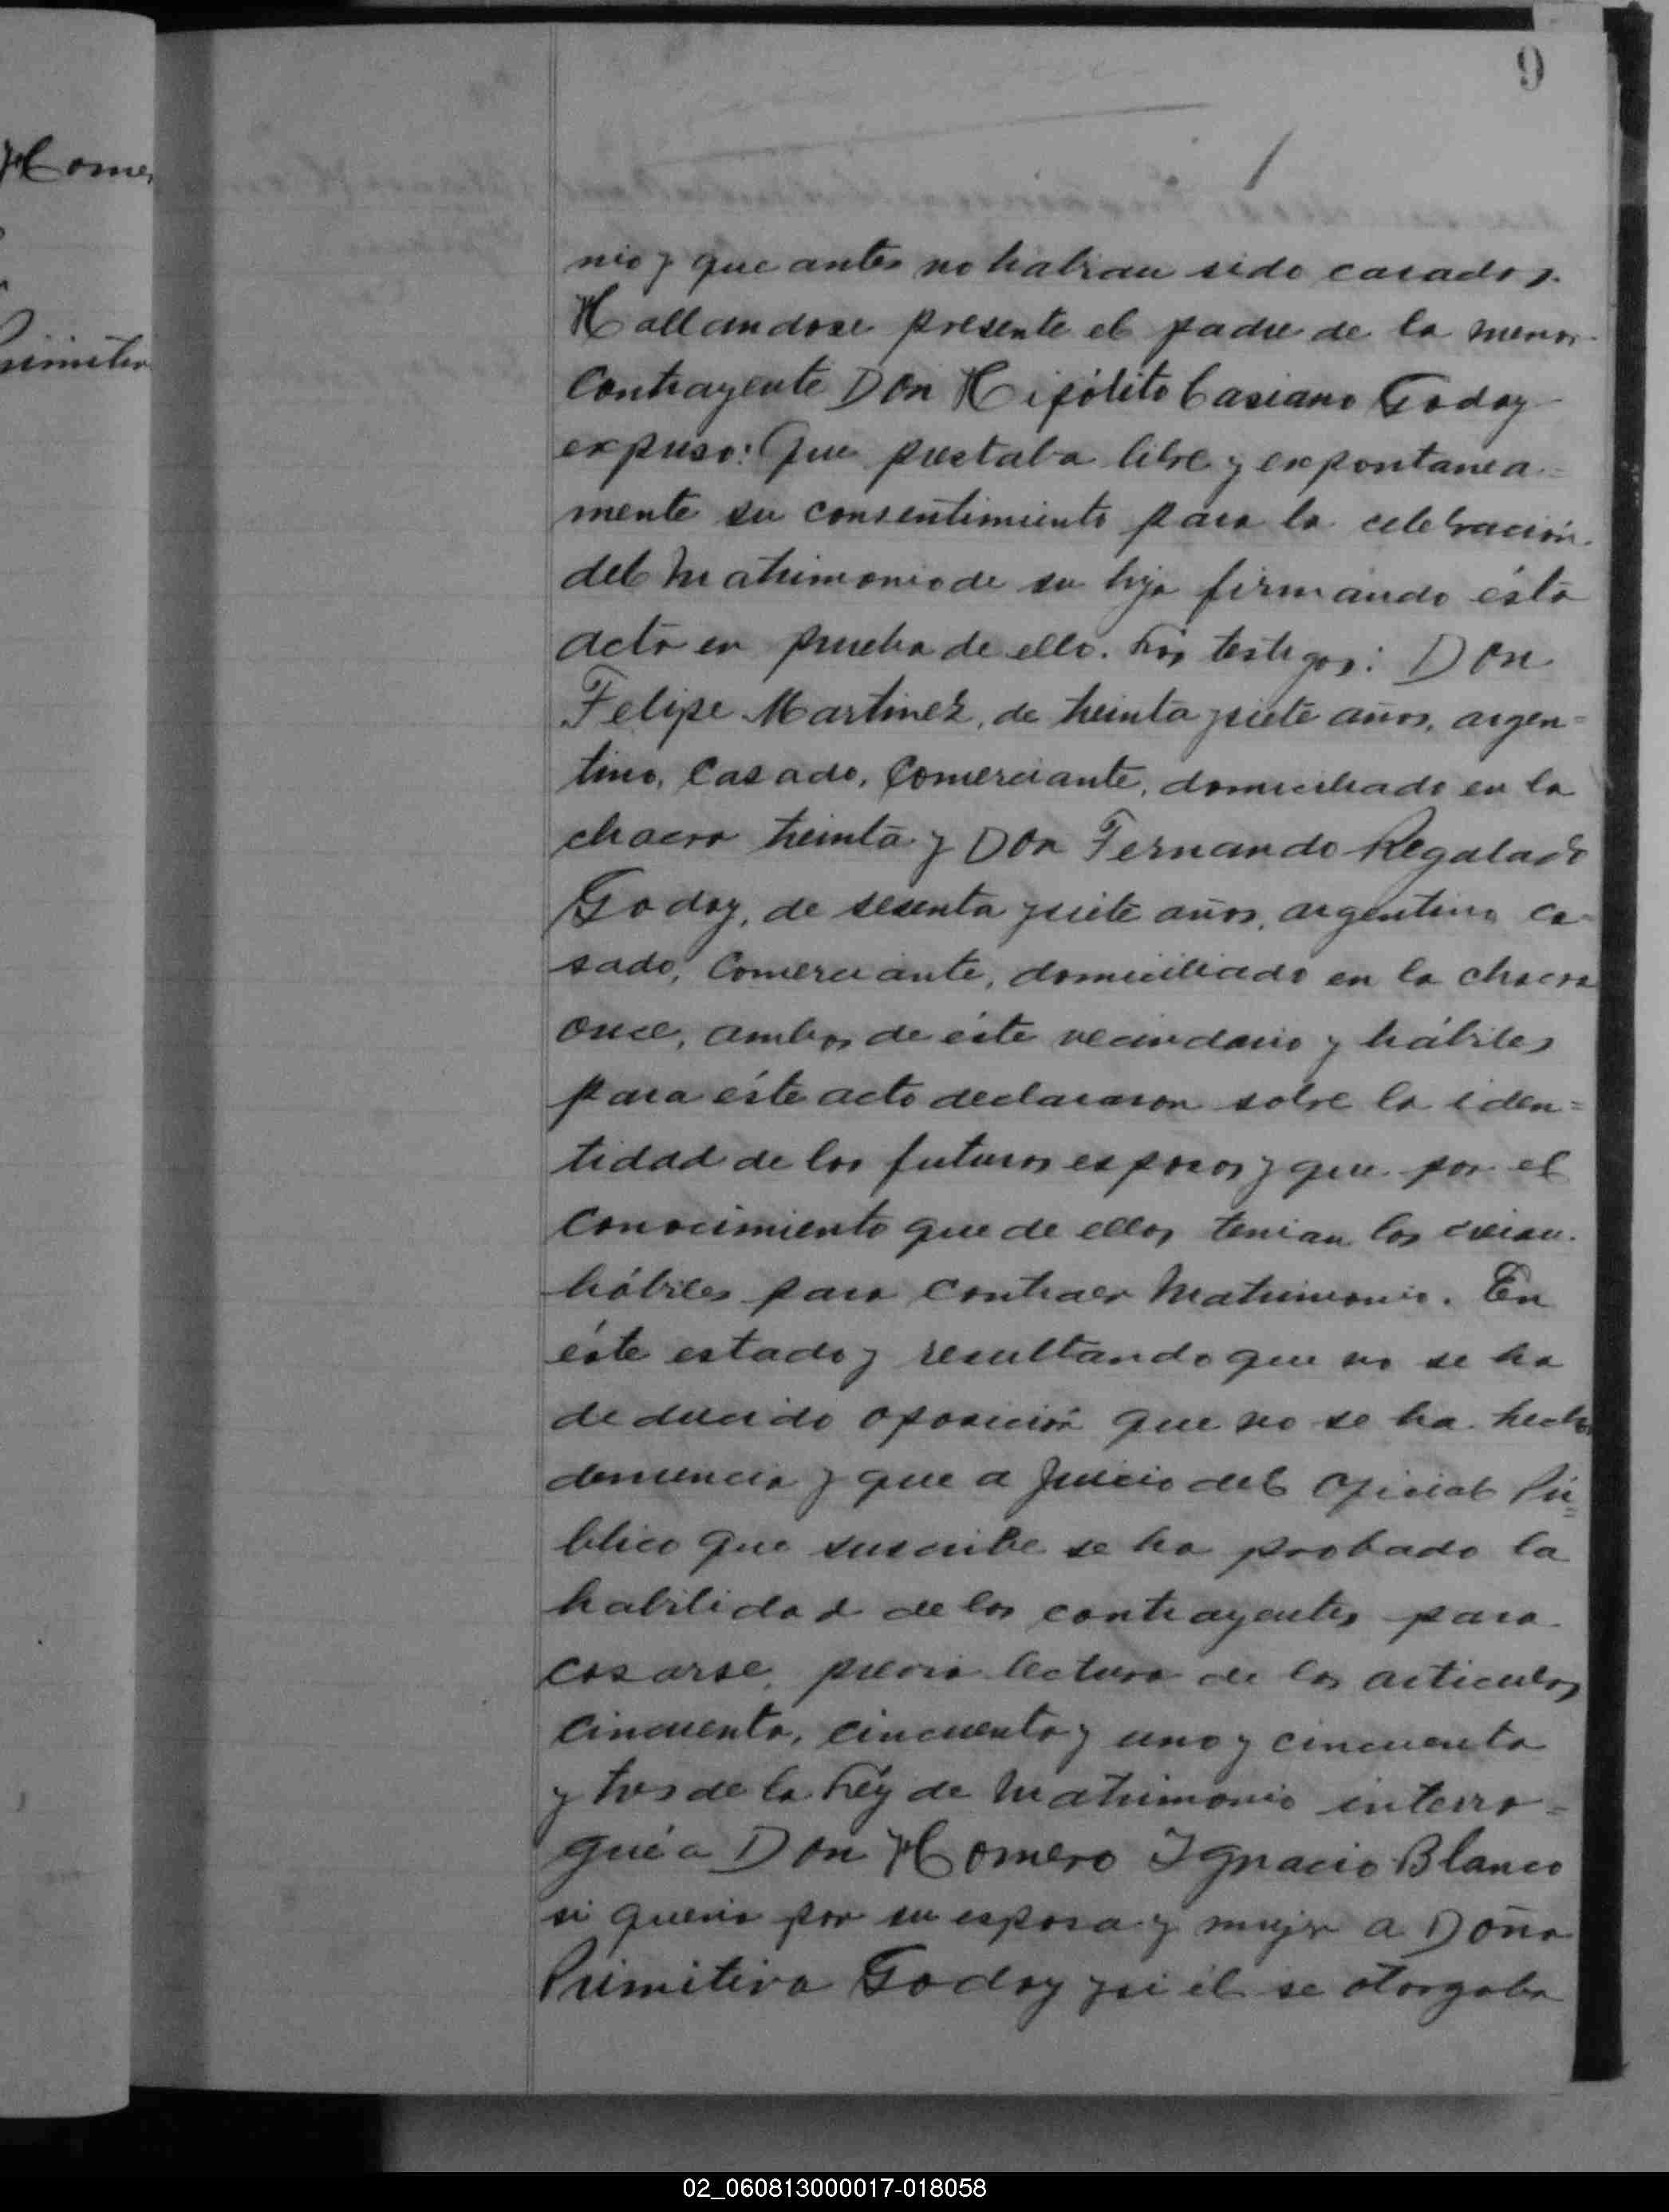 9
Home
Primitiv
nio y que antes no habian sido casados.
Hallandose presente el padre de la menor
contrayente Don Hipólito Casiano Godoy
expuso: Que prestaba libre y expontanea=
mente su consentimiento para la celebración
del Matrimonio de su hija firmando ésta
acta en prueba de ello. Los testigos: Don
Felipe Martinez, de treinta y siete años, argen=
tino, Casado, Comerciante, domiciliado en la
chacra treinta y Don Fernando Regalado
Godoy, de sesenta y siete años, argentino ca=
sado, Comerciante, domiciliado en la chacra
once, ambos de éste vecindario y hábiles
para éste acto declararon sobre la iden=
tidad de los futuros esposos y que por el
conocimiento que de ellos tenian los creian
hábiles para contraer Matrimonio. En
éste estado y resultando que no se ha
deducido oposición que no se ha hecho
denuncia y que a juicio del Oficial Pú=
blico que suscribe se ha probado la
habilidad de los contrayentes para
casarse, previa lectura de los articulos
cincuenta, cincuenta y uno y cincuenta
y tres de la Léy de Matrimonio interro=
gué a Don Homero Ignacio Blanco
si queria por su esposa y mujer a Doña
Primitiva Godoy y si él se otorgaba
02_060813000017-018058